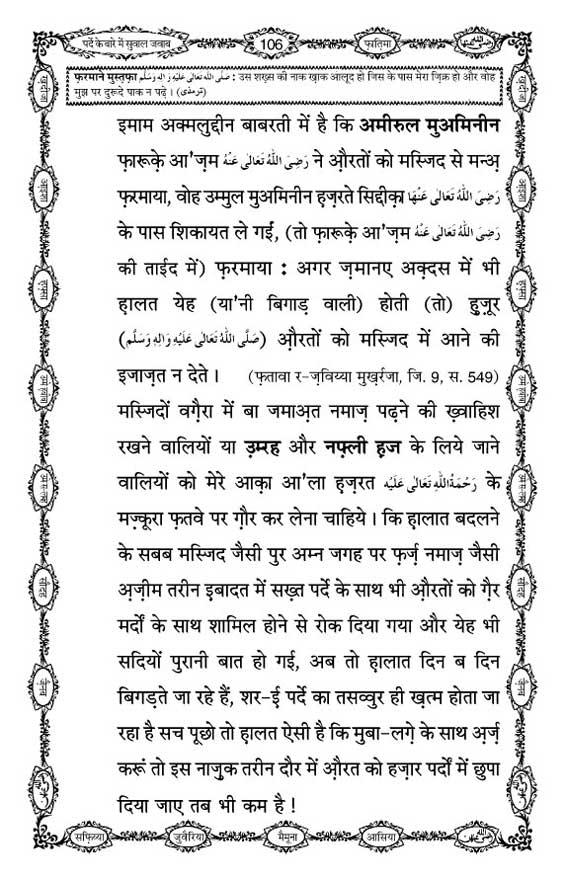 पर्दे के बारे में सुवाल जवाब
106
फ़ातिमा
फ़रमाने मुस्तफ़ा صَلَّى اللهُ تَعَالٰى عَلَيْهِ وَاٰلِهٖ وَسَلَّم : उस शख़्स की नाक ख़ाक आलूद हो जिस के पास मेरा ज़िक्र हो और वोह
मुझ पर दुरूदे पाक न पढ़े । (ترمذی)
इमाम अक्मलुद्दीन बाबरती में है कि अमीरुल मुअमिनीन
फ़ारूके़ आ'ज़म رَضِىَ اللهُ تَعَالٰى عَنْهُ ने औ़रतों को मस्जिद से मन्अ़
फ़रमाया, वोह उम्मुल मुअमिनीन ह़ज़रते सिद्दीक़ा رَضِىَ اللهُ تَعَالٰى عَنْهَا
के पास शिकायत ले गईं, (तो फ़ारूके़ आ'ज़म رَضِىَ اللهُ تَعَالٰى عَنْهُ
की ताईद में) फ़रमाया : अगर ज़मानए अक़्दस में भी
ह़ालत येह (या'नी बिगाड़ वाली) होती (तो) ह़ुज़ूर
(صَلَّى اللهُ تَعَالٰى عَلَيْهِ وَاٰلِهٖ وَسَلَّم) औ़रतों को मस्जिद में आने की
इजाज़त न देते । (फ़तावा र-ज़विय्या मुख़र्रजा, जि. 9, स. 549)
मस्जिदों वग़ैरा में बा जमाअ़त नमाज़ पढ़ने की ख़्वाहिश
रखने वालियों या उ़म्रह और नफ़्ली ह़ज के लिये जाने
वालियों को मेरे आक़ा आ'ला ह़ज़रत رَحْمَةُ اللهِ تَعَالٰى عَلَيْه के
मज़्कूरा फ़तवे पर ग़ौर कर लेना चाहिये । कि ह़ालात बदलने
के सबब मस्जिद जैसी पुर अम्न जगह पर फ़र्ज़ नमाज़ जैसी
अ़ज़ीम तरीन इ़बादत में सख़्त पर्दे के साथ भी औ़रतों को ग़ैर
मर्दों के साथ शामिल होने से रोक दिया गया और येह भी
सदियों पुरानी बात हो गई, अब तो ह़ालात दिन ब दिन
बिगड़ते जा रहे हैं, शर-ई़ पर्दे का तसव्वुर ही ख़त्म होता जा
रहा है सच पूछो तो ह़ालत ऐसी है कि मुबा-लग़े के साथ अ़र्ज़
करूं तो इस नाज़ुक तरीन दौर में औ़रत को हज़ार पर्दों में छुपा
दिया जाए तब भी कम है !
सफ़िय्या
जुवैरिया
मैमूना
आसिया